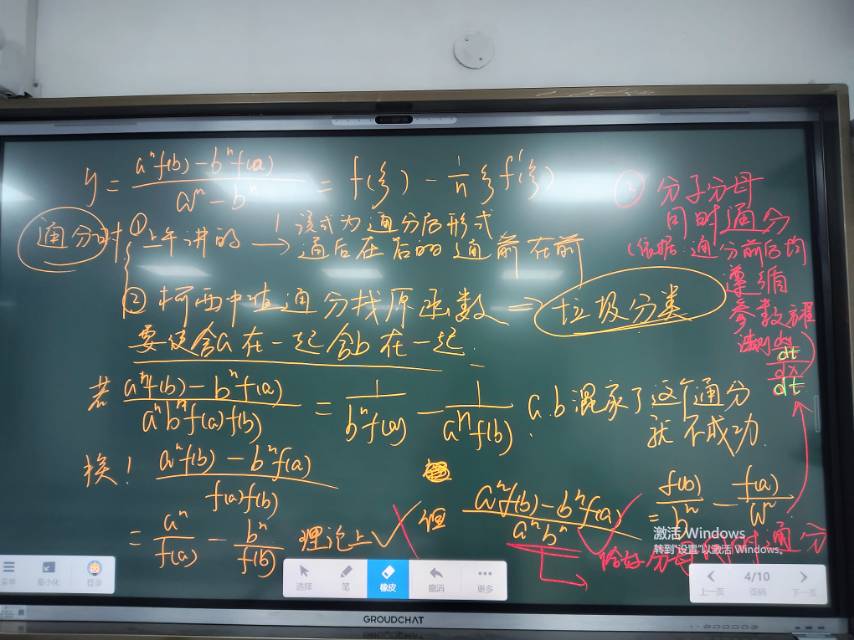 y = (aⁿf(b) − bⁿf(a)) / (aⁿ − bⁿ) = f(ξ) − (1/n) ξ f'(ξ)
通分时 ① 上午讲的 → 该式为通分后形式
通后在后的 通前在前
② 柯西中值通分找原函数 ⇒ 垃圾分类
要使含a在一起含b在一起.
若 (aⁿf(b) − bⁿf(a)) / (aⁿbⁿf(a)f(b)) = 1/(bⁿf(a)) − 1/(aⁿf(b)) a.b混家了这个通分
就不成功.
换! (aⁿf(b) − bⁿf(a)) / (f(a)f(b))
= aⁿ/f(a) − bⁿ/f(b) 理论上✓
但 (aⁿf(b) − bⁿf(a)) / (aⁿbⁿ) = f(b)/bⁿ − f(a)/aⁿ
恰好 分母 通分
③ 分子分母
同时通分
(依据:通分前后均
遵循
参数方程
法则 dy/dt
dx/dt)
激活 Windows
转到"设置"以激活 Windows。
菜单 最小化 登录
选择 笔 橡皮 撤消 更多
上一页 4/10 页码 下一页
GROUDCHAT